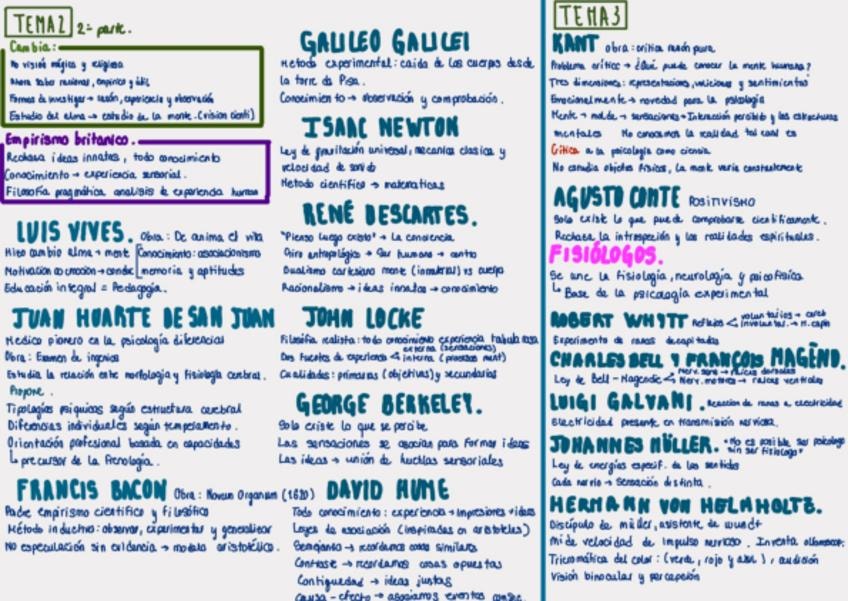 TEMA2 2ª parte.
Cambia:
No visión mágica y religiosa
Ahora saber racional, empírico y útil
Formas de investigar → razón, experiencia y observación
Estudio del alma → estudio de la mente. (visión cienti)
Empirismo britanico.
Rechaza ideas innatas, todo conocimiento
Conocimiento → experiencia sensorial.
Filosofía pragmática analisis de experiencia humana
LUIS VIVES. Obra: De anima et vita
Hizo cambio alma → mente Conocimiento: asociacionismo
Motivación conduc memoria y aptitudes
Educación integral = Pedagogía.
JUAN HUARTE DE SAN JUAN
Medico pionero en la psicología diferencial
Obra: Examen de ingenios
Estudia la relación entre morfología y fisiología cerebral.
Propone.
Tipologías psíquicas según estructura cerebral
Diferencias individuales según temperamento.
Orientación profesional basada en capacidades
↳ precursor de la frenología.
FRANCIS BACON Obra: Novum Organum (1620)
Padre empirismo científico y filosófico
Método inductivo: observar, experimentar y generalizar
No especulación sin evidencia → modelo aristotélico.
GALILEO GALILEI
Metodo experimental: caida de los cuerpos desde
la torre de Pisa.
Conocimiento → observación y comprobación.
ISAAC NEWTON
Ley de gravitación universal, mecanica clasica y
velocidad de sonido
Metodo científico → matematicas
RENÉ DESCARTES.
"Pienso luego existo" → La conciencia
Giro antropológico → Ser humano → centro
Dualismo cartesiano mente (inmaterial) vs cuerpo
Racionalismo → ideas innatas → conocimiento
JOHN LOCKE
Filosofía realista: todo conocimiento experiencia tabula rasa
Dos fuentes de experiencia < externa (sensaciones) interna (procesos ment)
Cualidades: primarias (objetivas) y secundarias
GEORGE BERKELEY.
Solo existe lo que se percibe
Las sensaciones se asocian para formar ideas
Las ideas → unión de huellas sensoriales
DAVID HUME
Todo conocimiento: experiencia → impresiones → ideas
Leyes de asociación (inspiradas en aristoteles)
Semejanza → recordamos cosas similares
Contraste → recordamos cosas opuestas
Contiguedad → ideas juntas
Causa - efecto → asociamos eventos consec.
TEMA3
KANT obra: critica razón pura
Problema crítico → ¿Qué puede conocer la mente humana?
Tres dimensiones: representaciones, voliciones y sentimientos
Emocionalmente → novedad para la psicología
Mente → molde → sensaciones → Interacción percibido y las estructuras
mentales No conocemos la realidad tal cual es
Crítica a la psicología como ciencia
No estudia objetos físicos, la mente varía constantemente
AGUSTO COMTE POSITIVISMO
Solo existe lo que puede comprobarse cientificamente.
Rechaza la introspeción y las realidades espirituales.
FISIÓLOGOS.
Se une la fisiología, neurología y psicofísica
↳ Base de la psicología experimental
ROBERT WHYTT Reflejos < voluntarios → cereb involuntar. → m. espin
Experimento de ranas decapitadas
CHARLES BELL Y FRANÇOIS MAGEND.
Ley de Bell - Magendie < Nerv. sens → raices dorsales Nerv. motores → raices ventrales
LUIGI GALVANI. Reaccion de ranas a electricidad
Electricidad presente en transmisión nerviosa.
JOHANNES MÜLLER. "No es posible ser psicologo sin ser fisiologo"
Ley de energías especif. de los sentidos
Cada nervio → sensación distinta.
HERMANN VON HELMHOLTZ.
Discípulo de müller, asistate de wundt
Mide velocidad de impulso nervioso. Inventa oftalmoscop.
Tricromática del color: (verde, rojo y azul), audición
Visión binocular y percepción